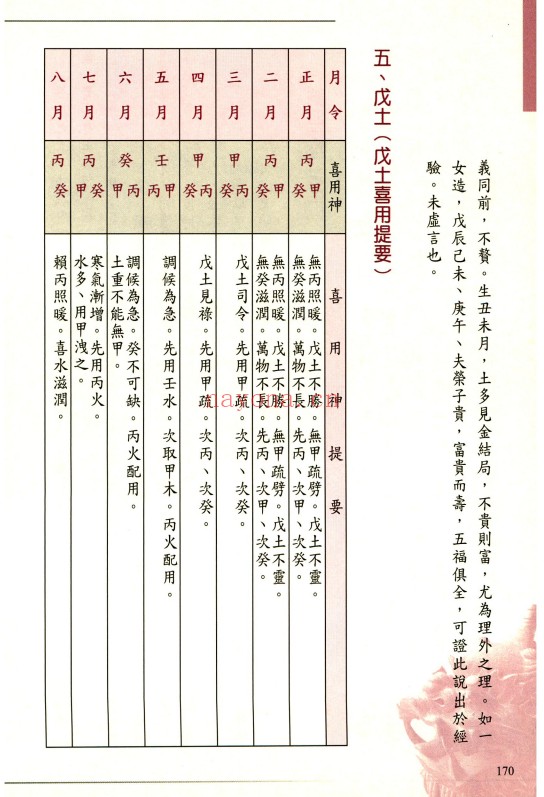 義同前，不贅。生丑未月，土多見金結局，不貴則富，尤為理外之理。如一
女造，戊辰己未、庚午、夫榮子貴，富貴而壽，五福俱全，可證此說出於經
驗。未虛言也。
五、戊土（戊土喜用提要）
月令
喜用神
喜用神提要
正月
丙甲癸
無丙照暖。戊土不勝。無甲疏劈。戊土不靈。
無癸滋潤。萬物不長。先丙、次甲、次癸。
二月
丙甲癸
無丙照暖。戊土不勝。無甲疏劈。戊土不靈。
無癸滋潤。萬物不長。先丙、次甲、次癸。
三月
甲丙癸
戊土司令。先用甲疏。次丙、次癸。
四月
甲丙癸
戊土見祿。先用甲疏。次丙、次癸。
五月
壬甲丙
調候為急。先用壬水。次取甲木。丙火配用。
六月
癸丙甲
調候為急。癸不可缺。丙火配用。
土重不能無甲。
七月
丙癸甲
寒氣漸增。先用丙火。
水多、用甲洩之。
八月
丙癸
賴丙照暖。喜水滋潤。
170